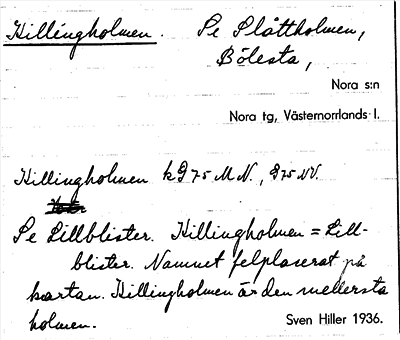 Killingholmen. Se Slåttholmen,
Bölesta,
Nora s:n
Nora tg, Västernorrlands l.
Killingholmen k G 75 M N., G 75 NV.
Se Lillblister. Killingholmen = Lill-
blister. Namnet felplaserat på
kartan. Killingholmen är den mellersta
holmen.
Sven Hiller 1936.